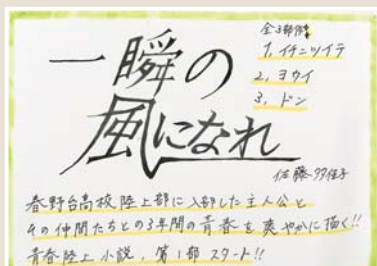 全3部作
1, イチニツイテ
一瞬の
2, ヨウイ
3, ドン
風になれ
佐藤多佳子
春野台高校陸上部に入部した主人公と
その仲間たちとの3年間の青春を爽やかに描く!!
青春陸上小説、第1部スタート!!